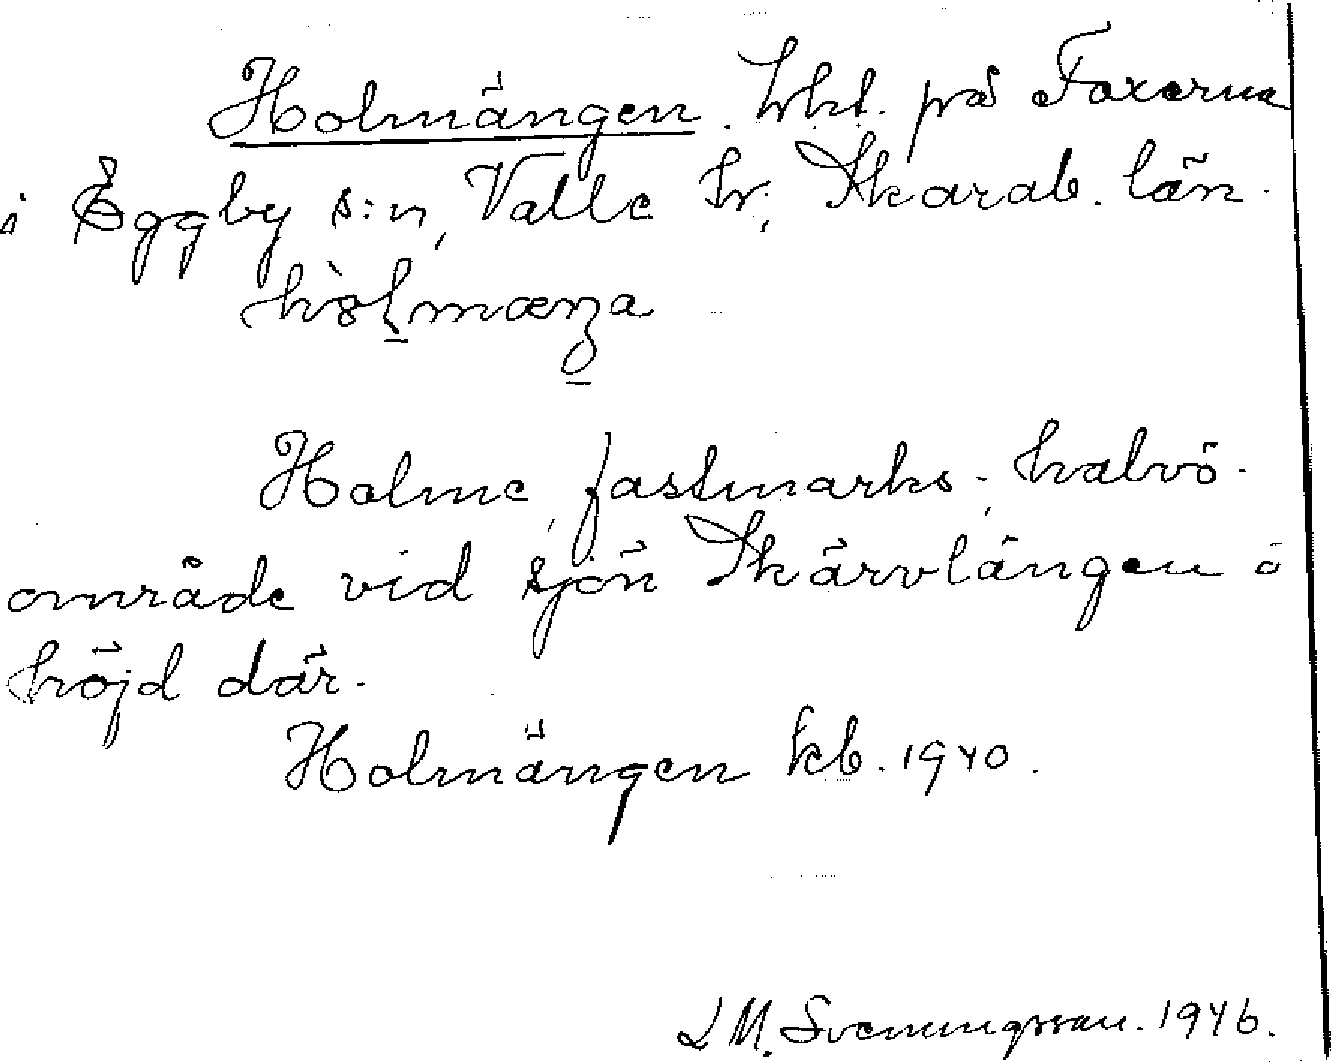 Holmängen. trkt. på Foxerna
i Eggby s:n, Valle hr, Skarab. län.
Holme, fastmarks-, halvö-
område vid sjön Skärvlängen o
höjd där.
Holmängen kb. 1940.
L M. Svenungsson. 1946.